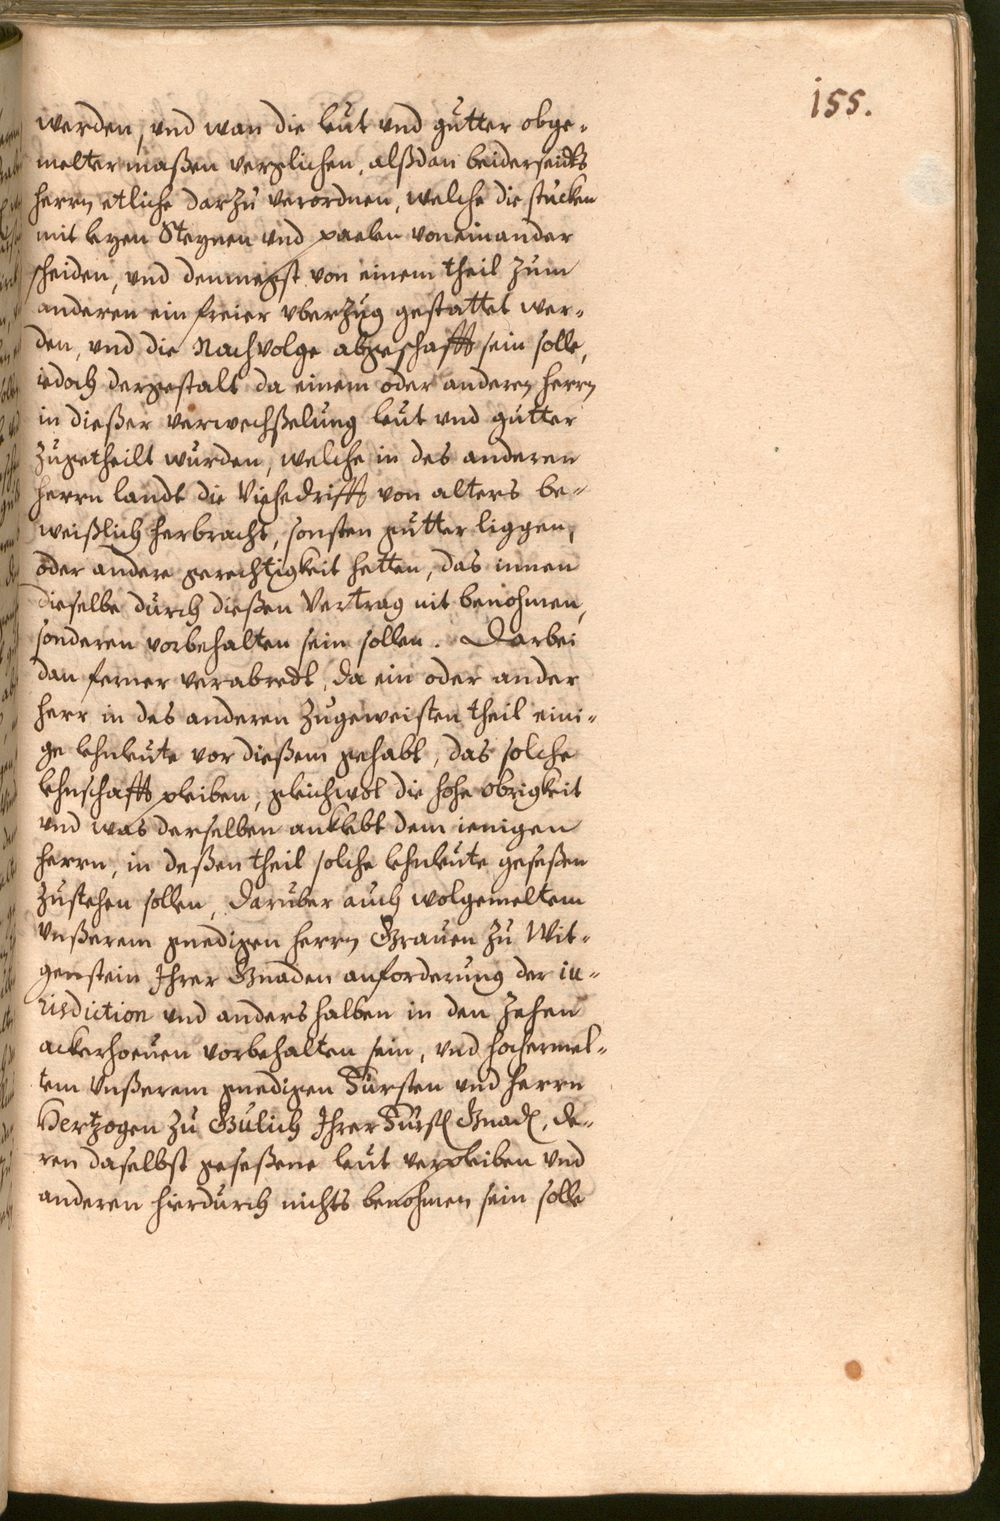 155.
werden, vnd wan die leut vnd gutter obge-
melter maßen verglichen, alßdan beiderseidts
herrn etliche darzu verordnen, welche die stucken
mit legen Steynen vnd paelen voneinander
scheiden, vnd demnegst von einem theil zum
anderen ein freier vberzug gestattet wer-
den, vnd die Nachvolge abgeschafft sein solle,
iedoch dergestalt da einem oder anderen herrn
in dießer verwechßelung leut vnd gutter
zugetheilt wurden, welche in des anderen
herrn landt die Viehedrifft von alters be-
weißlich herbracht, sonsten gutter liggen,
oder andere gerechtigkeit hetten, das innen
dieselbe durch dießen Vertrag nit benohmen,
sonderen vorbehalten sein sollen. Darbei
dan ferner verabredt, da ein oder ander
herr in des anderen zugeweisten theil eini-
ge lehnleute vor dießem gehabt, das solche
lehnschafft pleiben, gleichwol die hohe obrigkeit
vnd was derselben anklebt dem ienigen
herrn, in deßen theil solche lehnleute geseßen
zustehen sollen, Daruber auch wolgemeltem
vnßerem gnedigen herrn Grauen zu Wit-
genstein Ihrer Gnaden anforderung der iu-
risdiction vnd anders halben in den zehen
ackerhoeuen vorbehalten sein, vnd hochermel-
tem vnßerem gnedigen Fürsten vnd herrn
Hertzogen zu Gulich Ihrer Fürstl Gnad, de-
ren daselbst geseßene leut verpleiben vnd
anderen hierdurch nichts benohmen sein solle